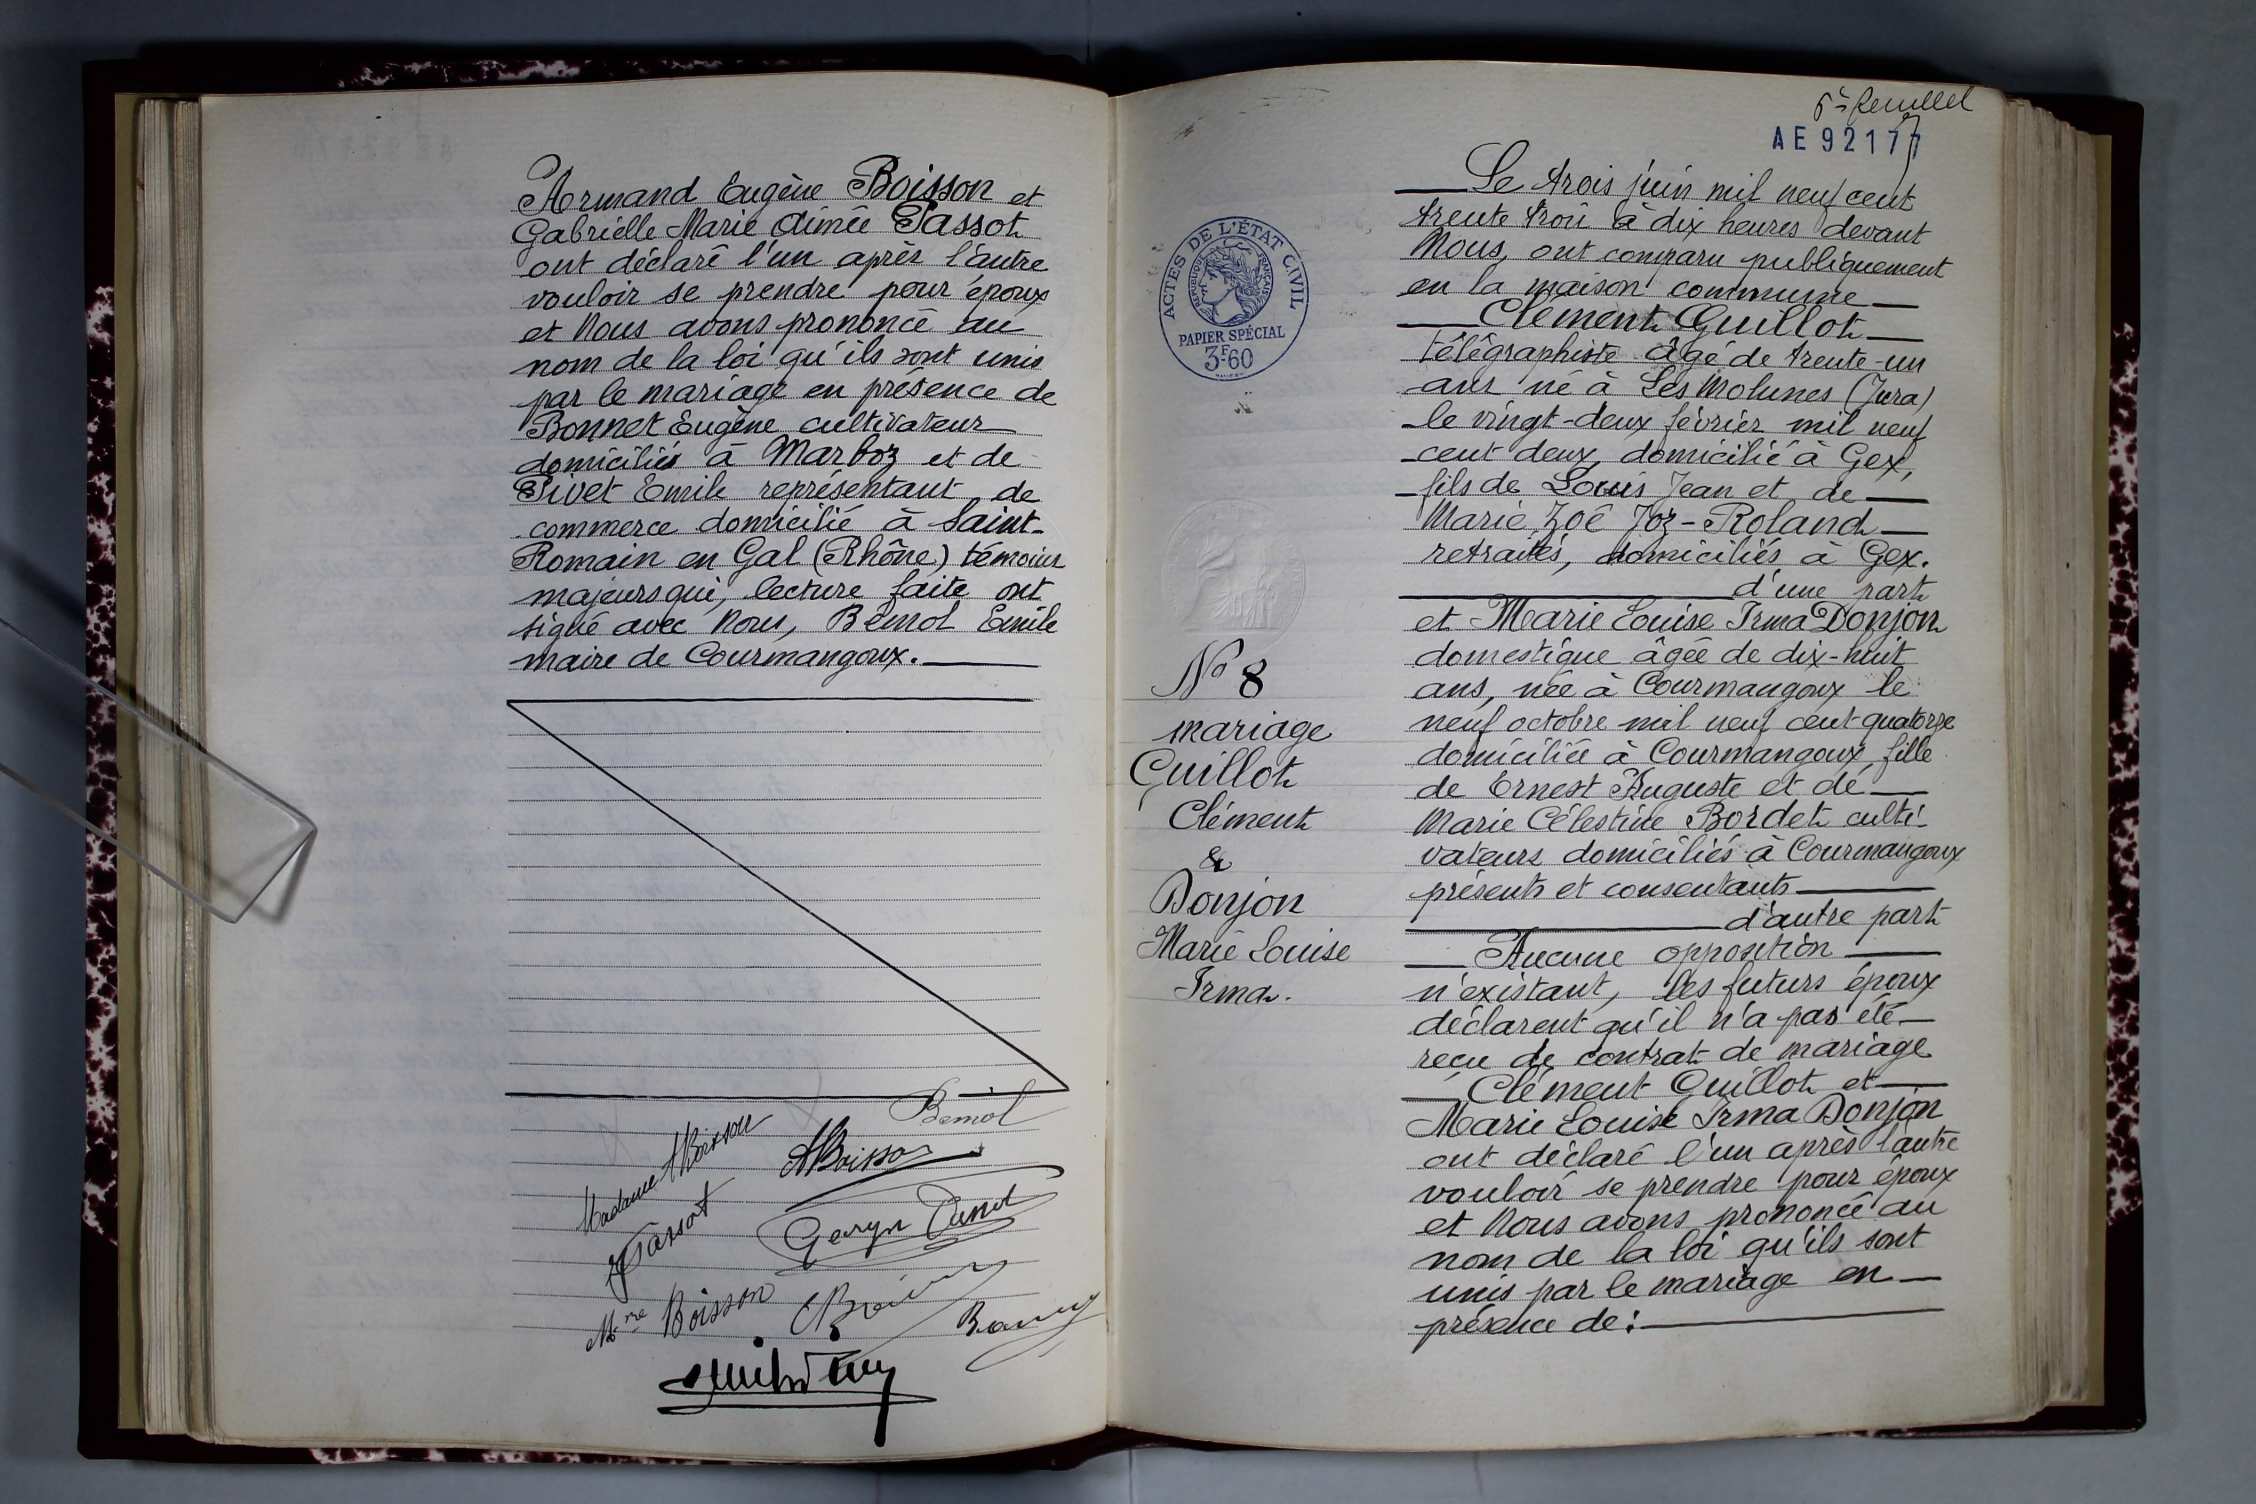 Armand Eugène Boisson et
Gabrielle Marie Aimée Tassot
ont déclaré l'un après l'autre
vouloir se prendre pour époux
et Nous avons prononcé au
nom de la loi qu'ils sont unis
par le mariage en présence de
Bonnet Eugène cultivateur
domiciliés à Marboz et de
Pivet Emile représentant de
commerce domicilié à Saint-
Romain en Gal (Rhône) témoins
majeurs qui, lecture faite ont
signé avec Nous, Bémol Emile
maire de Courmangoux.
Bemol
Madame Boisson
ABoisson
Tassot
Mme Boisson
6e feuillet
AE 92177
ACTES DE L'ÉTAT CIVIL
RÉPUBLIQUE FRANÇAISE
PAPIER SPÉCIAL
3F.60
N° 8
mariage
Guillot
Clément
&
Donjon
Marie Louise
Irma.
Le trois juin mil neuf cent
trente trois à dix heures devant
Nous, ont comparu publiquement
en la maison commune
Clément Guillot
télégraphiste âgé de trente-un
ans né à Les Molunes (Jura)
le vingt-deux février mil neuf
cent deux, domicilié à Gex,
fils de Louis Jean et de
Marie Zoé Joz-Roland
retraités, domiciliés à Gex.
d'une part
et Marie Louise Irma Donjon
domestique âgée de dix-huit
ans, née à Courmangoux le
neuf octobre mil neuf cent quatorze
domiciliée à Courmangoux, fille
de Ernest Auguste et de
Marie Célestine Bordet culti-
vateurs domiciliés à Courmangoux
présents et consentants
d'autre part
Aucune opposition
n'existant, les futurs époux
déclarent qu'il n'a pas été
reçu de contrat de mariage
Clément Guillot et
Marie Louise Irma Donjon
ont déclaré l'un après l'autre
vouloir se prendre pour époux
et Nous avons prononcé au
nom de la loi qu'ils sont
unis par le mariage en
présence de :